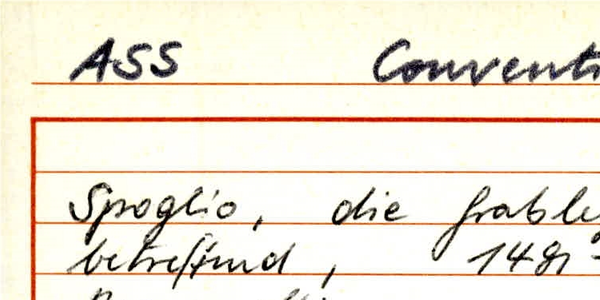 ASS Conventi
Spoglio, die Grable
betreffend, 1481-